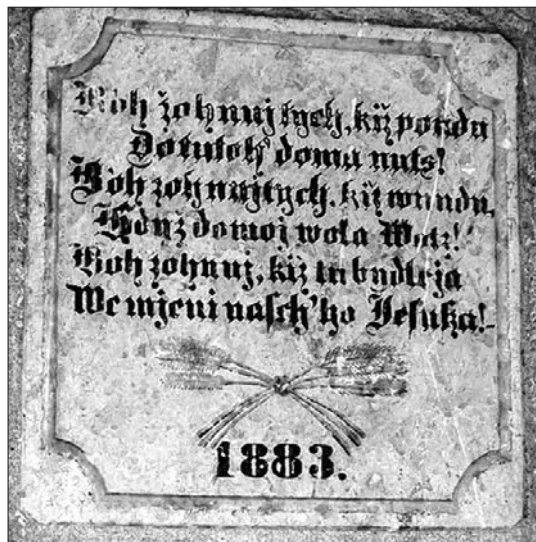 Boh žohnuj tych, kiž pondu
Do tutoh' doma nuts!
Boh žohnujtych, kiž wundu,
Hdyž domoj woła Wótz!
Boh žohnuj, kiž tu bydleja
We mjeni nasch'ho Jesuka!-
1883.